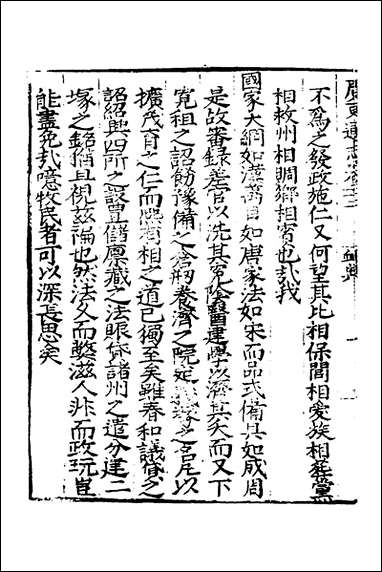 廣東通志卷之
不為之發政施仁又何望其比相保閭相愛族相葬黨
相救州相賙鄉相賓也哉我
國家大綱如漢萬目如唐家法如宋而品式備具如成周
是故審錄差官以洗其冤陰醫建學以濟其夭而又下
寬租之詔飭豫備之倉嗣養濟之院延之名庀以
擴茂育之仁而燮相之道已獨至矣雖春和議賑之
詔紹興四所之設置儲廩藏之法賑貸諸州之遣分建二
塚之銘猶且視茲蔑也然法久而弊滋人非而政玩豈
能盡免哉噫牧民者可以深長思矣